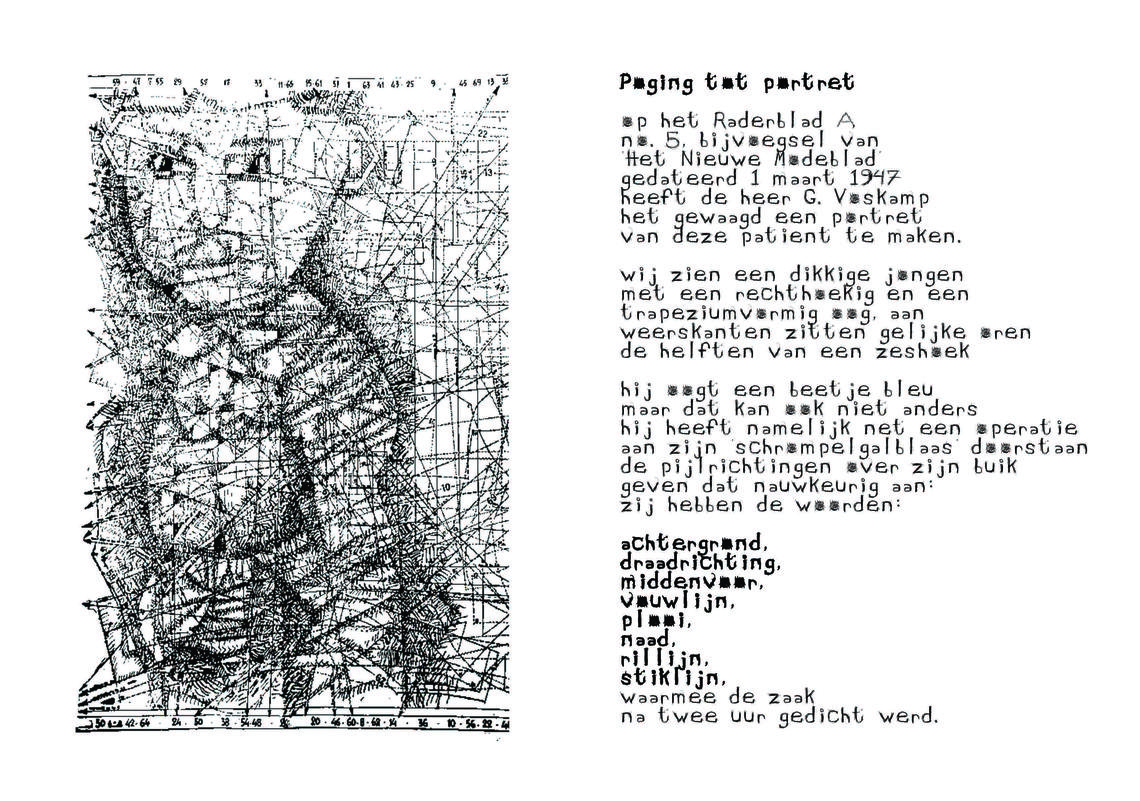 59 · 47 7 55 29 55 17 33 11·65 35·61 51 1 63 41 43·25 9 45 69 13 35
Poging tot portret
op het Raderblad A
no. 5, bijvoegsel van
'Het Nieuwe Modeblad'
gedateerd 1 maart 1947
heeft de heer G. Voskamp
het gewaagd een portret
van deze patient te maken.
wij zien een dikkige jongen
met een rechthoekig en een
trapeziumvormig oog, aan
weerskanten zitten gelijke oren
de helften van een zeshoek
hij oogt een beetje bleu
maar dat kan ook niet anders
hij heeft namelijk net een operatie
aan zijn 'schrompelgalblaas' doorstaan
de pijlrichtingen over zijn buik
geven dat nauwkeurig aan:
zij hebben de woorden:
achtergrond,
draadrichting,
middenvoor,
vouwlijn,
plooi,
naad,
rillijn,
stiklijn,
waarmee de zaak
na twee uur gedicht werd.
42-64 24 50 38 54·48 20 · 46 · 60·8 · 62 · 14 36 10 · 56 · 22